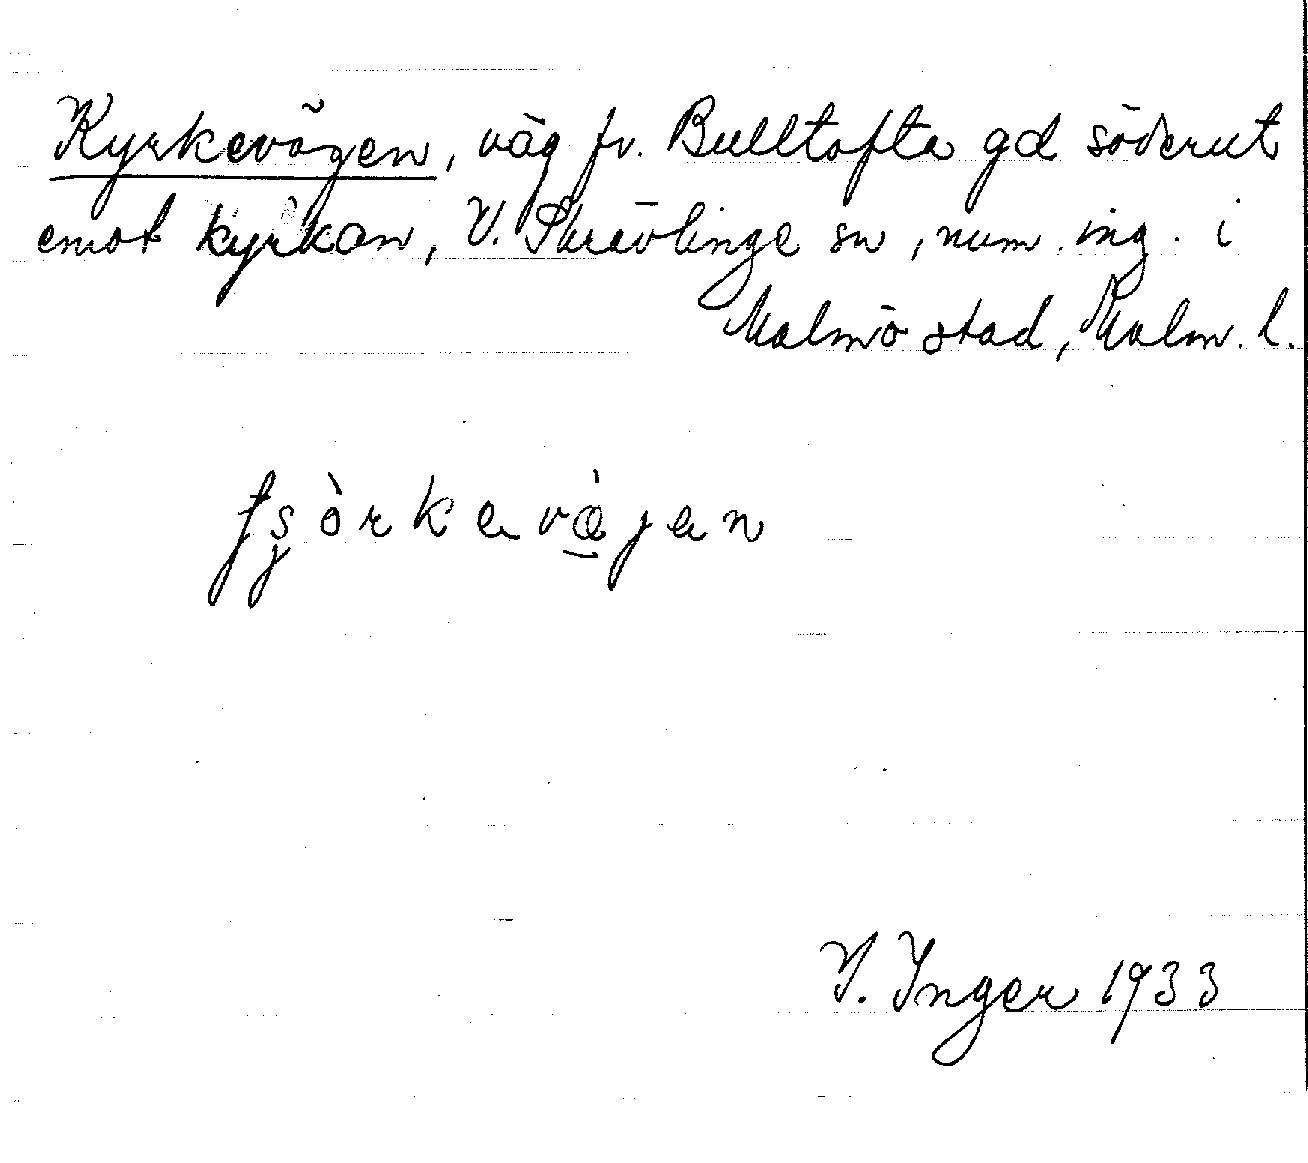 Kyrkevägen, väg fr. Bulltofta gd söderut
emot kyrkan, V. Skrävlinge sn, num. ing. i
Malmö stad, Malm. l.
I. Inger 1933